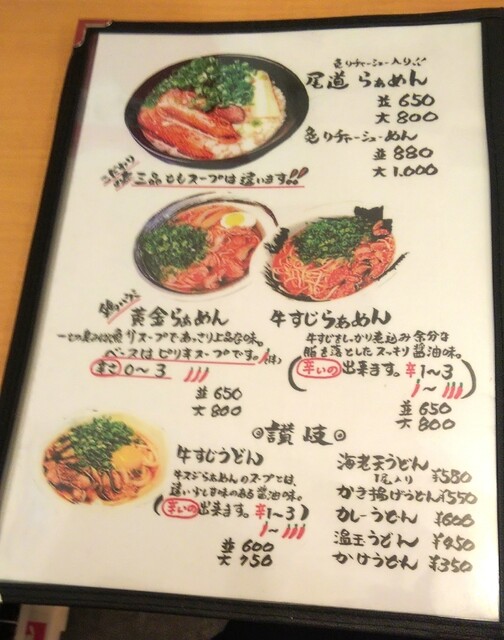 炙りチャーシュー入り!!
尾道らぁめん
並 650
大 800
炙りチャーシューめん
並 880
大 1.000
こだわりの 三品ともスープは違います!!
黄金らぁめん
魚介スープであっさり上品な味。
ベースはピリ辛スープです。
辛さ 0~3
並 650
大 800
牛すじらぁめん
牛すじをしっかり煮込み余分な
脂を落としたスッキリ醤油味。
辛いの出来ます。辛1~3
1~
並 650
大 800
◎讃岐◎
牛すじうどん
牛スジらぁめんのスープとは、
違い少し甘味のある醤油味。
辛いの出来ます。辛1~3
1~
並 600
大 750
海老天うどん ¥580
1尾入り
かき揚げうどん ¥550
カレーうどん ¥600
温玉うどん ¥450
かけうどん ¥350